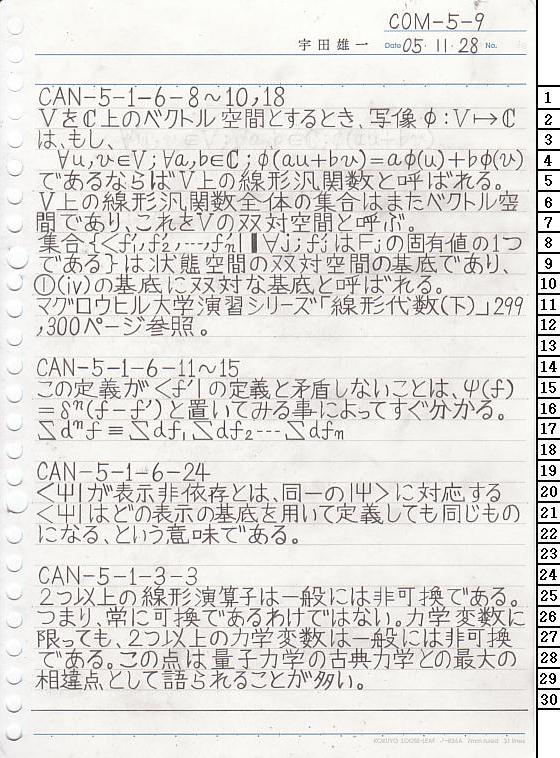 COM-5-9
宇田雄一 Date 05・11・28 No.
CAN-5-1-6-8～10,18
VをℂL上のベクトル空間とするとき、写像φ:V↦ℂ
は、もし、
∀u,v∈V;∀a,b∈ℂ;φ(au+bv)=aφ(u)+bφ(v)
であるならばV上の線形汎関数と呼ばれる。
V上の線形汎関数全体の集合はまたベクトル空
間であり、これをVの双対空間と呼ぶ。
集合{<f'₁,f'₂,---,f'ₙ| | ∀j;f'ⱼはFⱼの固有値の1つ
である}は状態空間の双対空間の基底であり、
①(iv)の基底に双対な基底と呼ばれる。
マグロウヒル大学演習シリーズ「線形代数(下)」299
,300ページ参照。
CAN-5-1-6-11～15
この定義が<f'|の定義と矛盾しないことは、ψ(f)
=δⁿ(f-f')と置いてみる事によってすぐ分かる。
∑dⁿf≡∑df₁∑df₂---∑dfₙ
CAN-5-1-6-24
<ψ|が表示非依存とは、同一の|ψ>に対応する
<ψ|はどの表示の基底を用いて定義しても同じもの
になる、という意味である。
CAN-5-1-3-3
2つ以上の線形演算子は一般には非可換である。
つまり、常に可換であるわけではない。力学変数に
限っても、2つ以上の力学変数は一般には非可換
である。この点は量子力学の古典力学との最大の
相違点として語られることが多い。
KOKUYO LOOSE-LEAF ノ-836A 7mm ruled 31 lines
1
2
3
4
5
6
7
8
9
10
11
12
13
14
15
16
17
18
19
20
21
22
23
24
25
26
27
28
29
30